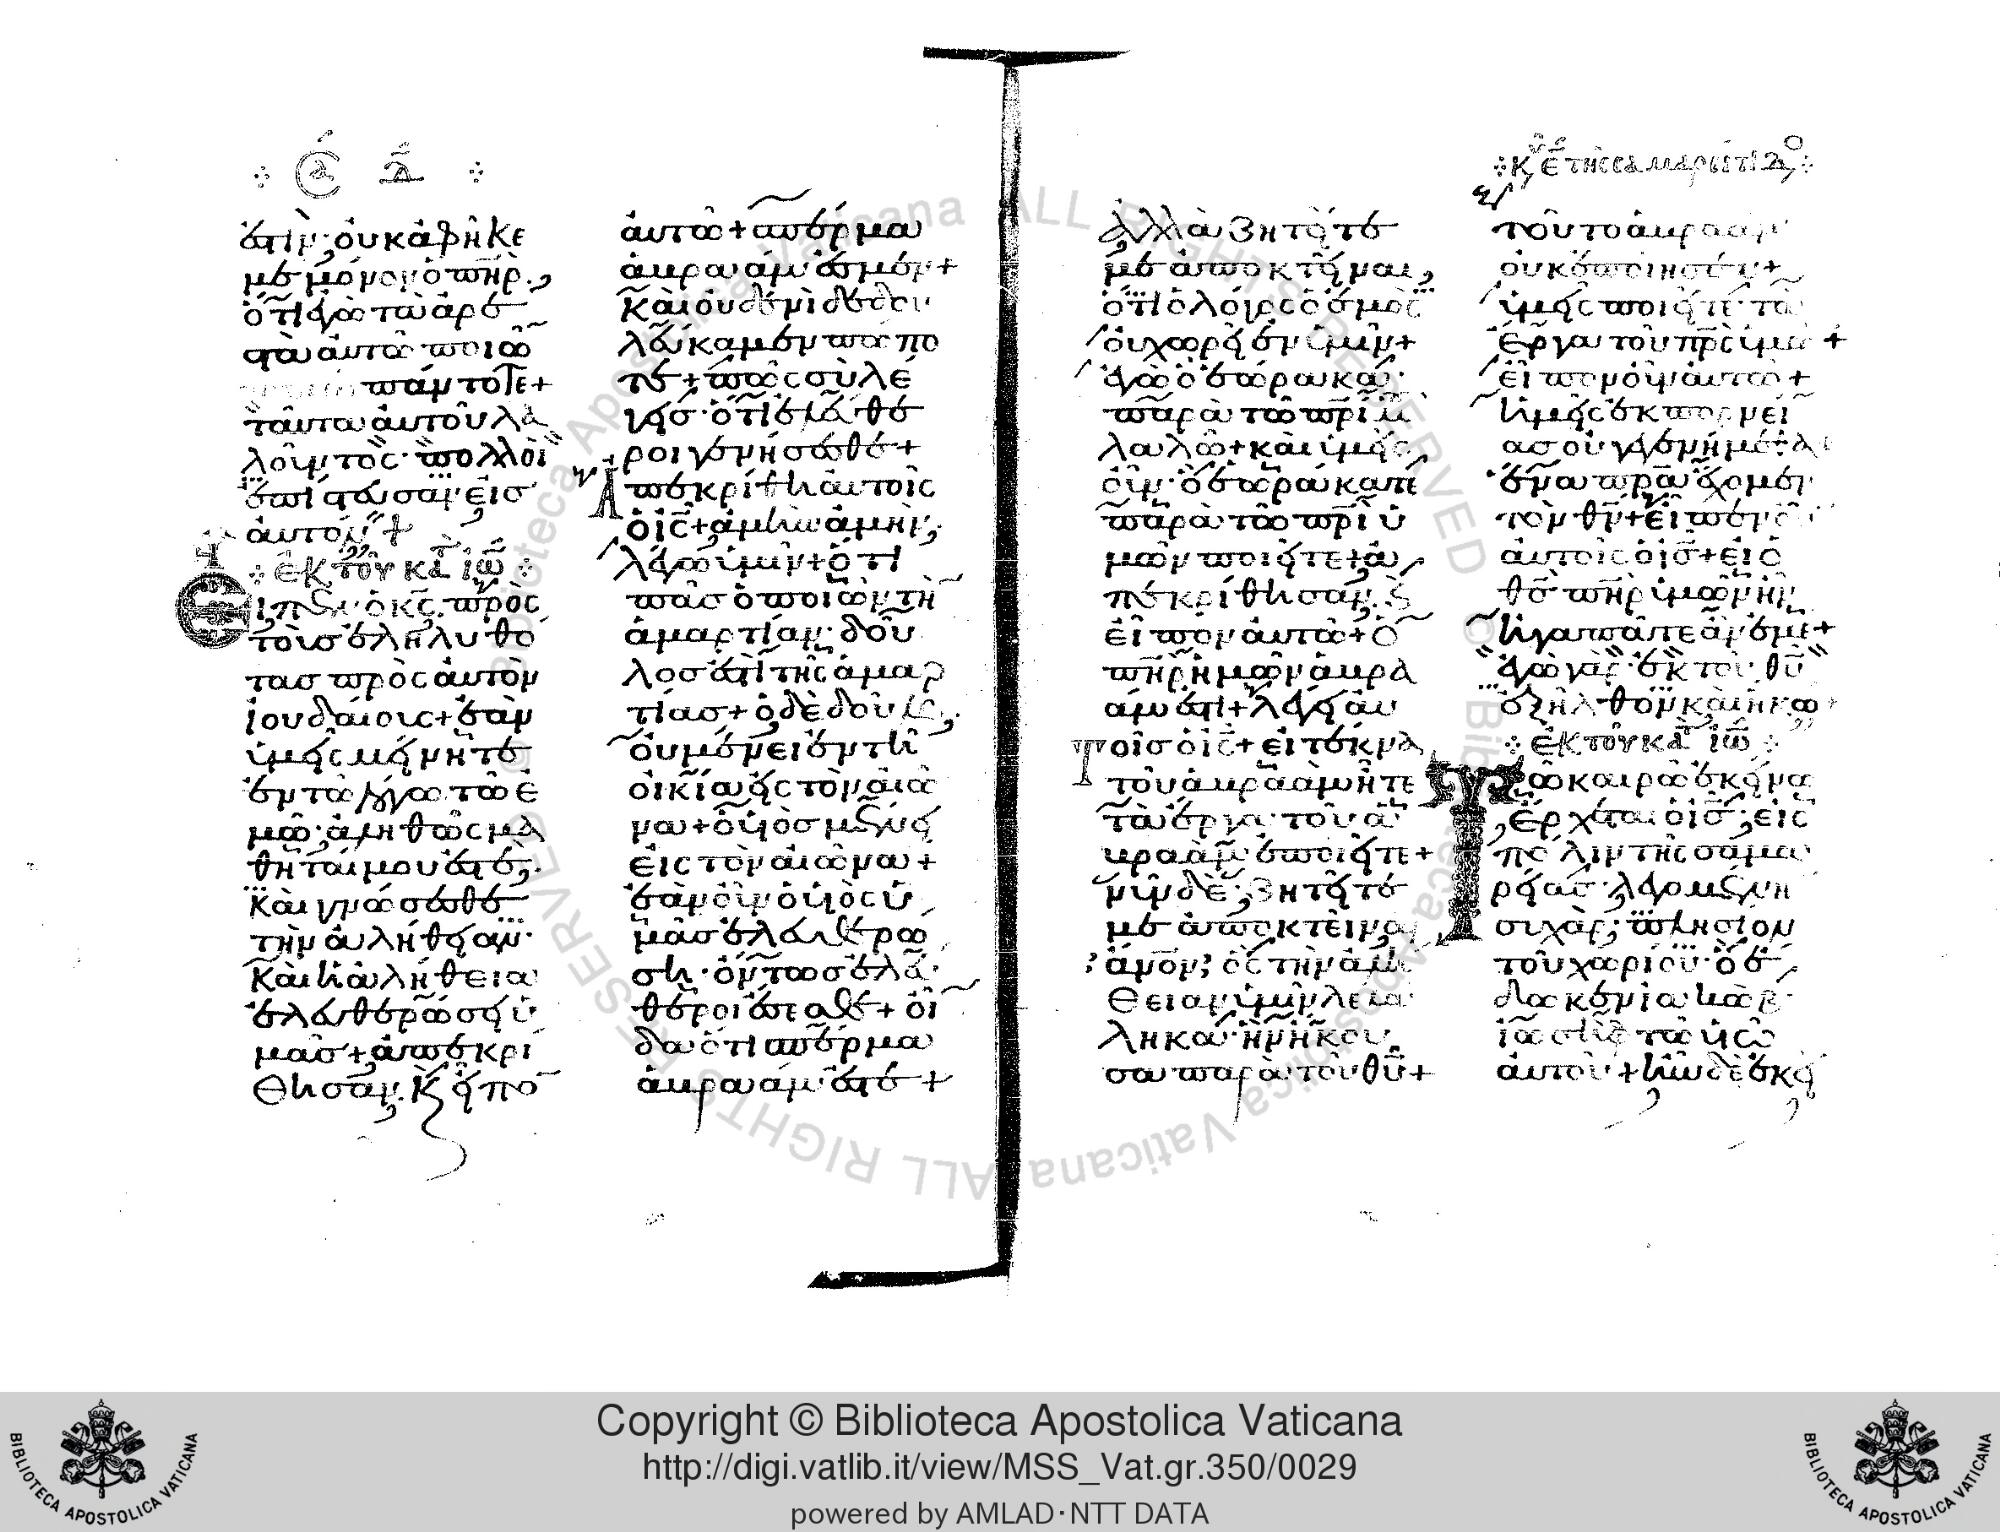 ἐστίν· οὐκ ἀφῆκε
με μόνον ὁ πηρ,
ὅτι ἐγὼ τὰ ἀρε
στὰ αὐτῶ ποιῶ
πάντοτε+
ταῦτα αὐτοῦ λα
λοῦντος· πολλοὶ
ἐπίστευσαν εἰσ
αὐτόν+
ἐκ τοῦ κατ ιω
Εἶπεν ὁ κς πρὸς
τοὺσ ἐληλυθο
τασ πρὸς αὐτὸν
ἰουδαίους+ ἐὰν
ὑμεῖς μείνητε
ἐν τῶ λόγω τῶ ἐ
μῶ· ἀληθῶς μα
θηταί μου ἐστέ,
καὶ γνώσεσθε
τὴν ἀλήθειαν·
καὶ ἡ ἀλήθεια
ἐλευθερώσει ὑ
μᾶσ+ ἀπεκρί
θησαν κ εἶπο
αὐτῶ+ σπέρμα
ἀβραάμ ἐσμεν+
καὶ οὐδενὶ δεδου
λεύκαμεν πώπο
τε+ πῶς σὺ λέ
γεισ· ὅτι ἐλεύθε
ροι γενήσεσθε+
Ἀπεκρίθη αὐτοῖς
ὁ ις+ ἀμὴν ἀμὴν
λέγω ὑμῖν+ ὅτι
πᾶσ ὁ ποιῶν τὴ
ἁμαρτίαν· δοῦ
λοσ ἐστὶ τῆς ἁμαρ
τίασ+ ὁ δὲ δοῦλος
οὐ μένει ἐν τῆ
οἰκία εἰς τὸν αἰῶ
να+ ὁ υἱὸσ μένει
εἰς τὸν αἰῶνα+
ἐὰν οὖν ὁ υἱὸς ὑ
μᾶσ ἐλευθερώ
ση· ὄντωσ ἐλεύ
θεροι ἔσεσθε+ οἶ
δα ὅτι σπέρμα
ἀβραάμ ἐστε+
ἀλλὰ ζητεῖτέ
με ἀποκτεῖναι,
ὅτι ὁ λόγος ὁ ἐμὸς
οὐ χωρεῖ ἐν ὑμῖν+
ἐγὼ ὃ ἑώρακα
παρὰ τῶ πρι μου
λαλῶ+ καὶ ὑμεῖς
οὖν ὃ ἑωράκατε
παρὰ τῶ πρι ὑ
μῶν ποιεῖτε+ ἀ
πεκρίθησαν κ
εἶπον αὐτῶ+ ὁ
πηρ ἡμῶν ἀβρα
άμ ἐστι+ λέγει αυ
Τοῖσ ὁ ις+ εἰ τέκνα
τοῦ ἀβραὰμ ἦτε
τὰ ἔργα τοῦ ἀ
βραὰμ ἐποιεῖτε+
νῦν δὲ ζητεῖτέ
με ἀποκτεῖναι
ἀνον, ὃς τὴν ἀλή
θειαν ὑμῖν λελά
ληκα· ἣν ἤκου
σα παρὰ τοῦ θυ+
κυ ε τῆς σαμαρείτιδο
τοῦτο ἀβραὰμ
οὐκ ἐποίησεν+
ὑμεῖς ποιεῖτε τὰ
ἔργα τοῦ πρς ὑμῶν+
εἶπον οὖν αὐτῶ+
ἡμεῖς ἐκ πορνεί
ασ οὐ γεγενήμεθα
ἕνα πρα ἔχομεν
τὸν θν+ εἶπεν οὖν
αὐτοῖς ὁ ις+ εἰ ὁ
θς πηρ ὑμῶν ἦν
ἠγαπᾶτε ἂν ἐμέ+
ἐγὼ γὰρ ἐκ τοῦ θυ
ἐξῆλθον καὶ ἥκω
ἐκ τοῦ κατ ιω
Τῶ καιρῶ ἐκείνω
ἔρχεται ὁ ις, εἰς
πόλιν τῆς σαμα
ρείας λεγομένη
συχὰρ, πλησίον
τοῦ χωρίου· ὃ ἔ
δωκεν ἰακὼβ
ἰωσὴφ τῶ υἱῶ
αὐτοῦ+ ἦν δὲ ἐκεῖ
Copyright © Biblioteca Apostolica Vaticana
http://digi.vatlib.it/view/MSS_Vat.gr.350/0029
powered by AMLAD·NTT DATA
BIBLIOTECA APOSTOLICA VATICANA
BIBLIOTECA APOSTOLICA VATICANA